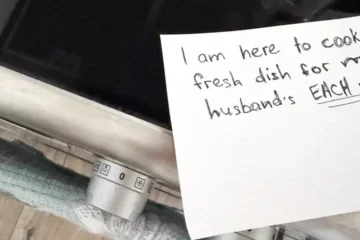 I am here to cook
fresh dish for
husband's EACH
0